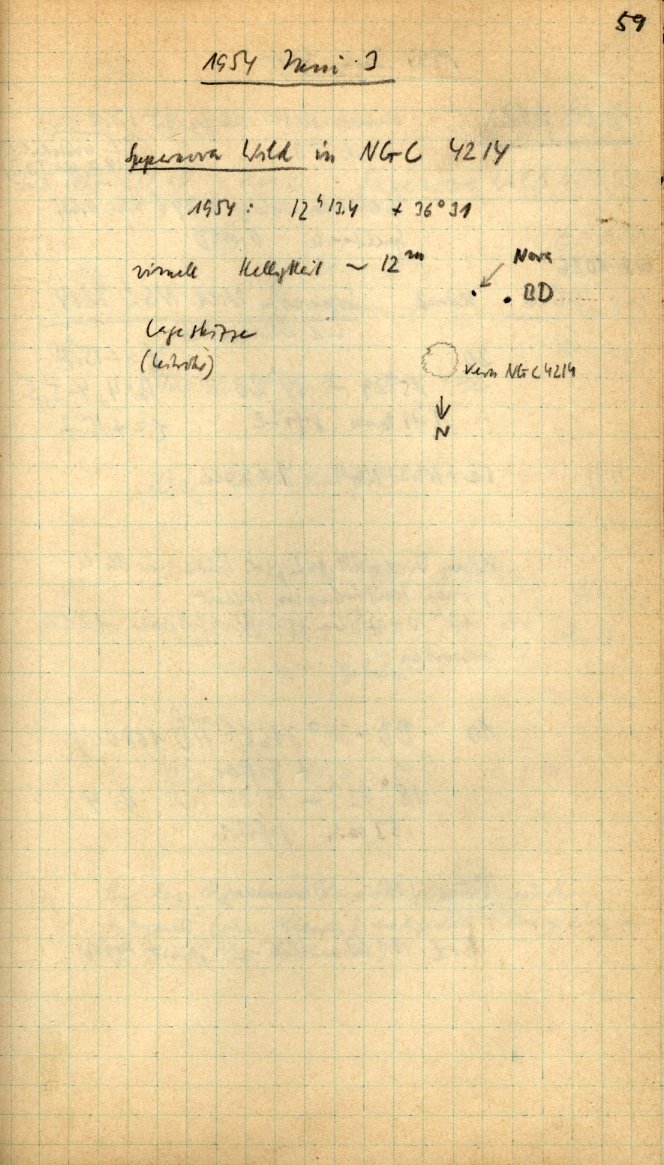 59
1954 Juni 3
Supernova Wild in NGC 4214
1954: 12h13.4 + 36°31
visuelle Helligkeit ~ 12m
Nova
BD
Lageskizze
(Leitrohr)
Kern NGC 4214
N